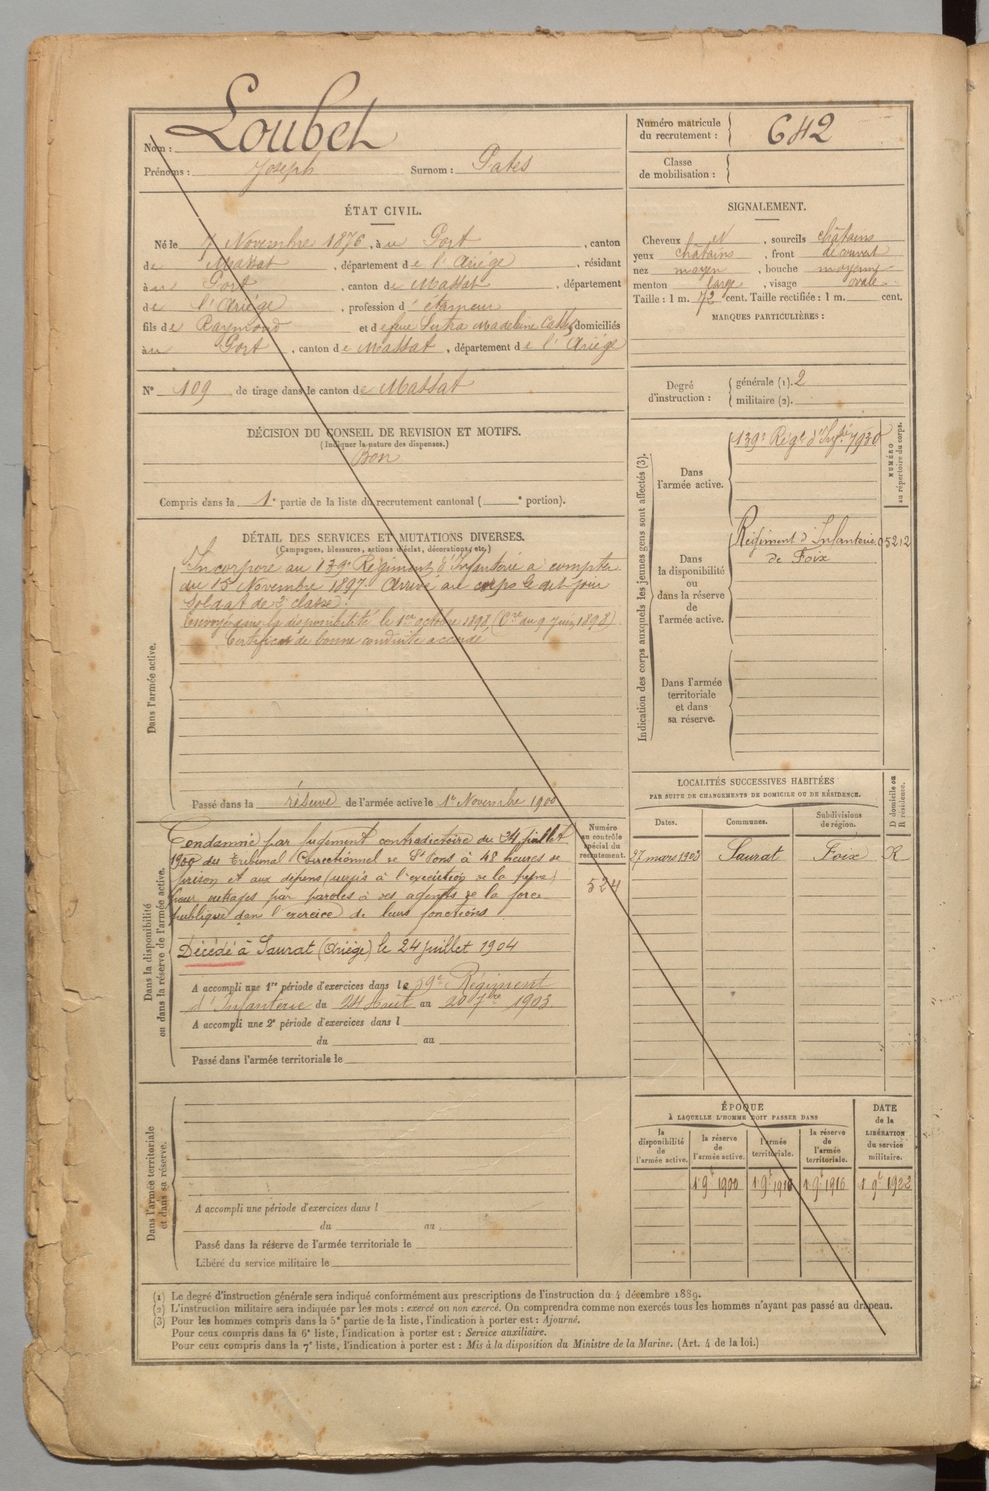 Nom : Loubet
Prénoms : Joseph Surnom : Patès
Numéro matricule du recrutement : 642
Classe de mobilisation :
ÉTAT CIVIL.
Né le 7 Novembre 1876, à u Port, canton
de Massat, département de l'Ariège, résidant
à u Port, canton de Massat, département
de l'Ariège, profession d' étameur
fils de Raymond et de feue Sutra Madeleine domiciliés
à u Port, canton de Massat, département de l'Ariège
N° 109 de tirage dans le canton de Massat
SIGNALEMENT.
Cheveux et, sourcils châtains
yeux châtains, front découvert
nez moyen, bouche moyenne
menton large, visage ovale
Taille : 1 m. 72 cent. Taille rectifiée : 1 m. cent.
MARQUES PARTICULIÈRES :
Degré d'instruction : générale (1). 2
militaire (2).
DÉCISION DU CONSEIL DE REVISION ET MOTIFS.
(Indiquer la nature des dispenses.)
Bon
Compris dans la 1e partie de la liste du recrutement cantonal ( e portion).
DÉTAIL DES SERVICES ET MUTATIONS DIVERSES.
(Campagnes, blessures, actions d'éclat, décorations, etc.)
Dans l'armée active.
Incorporé au 139e Régiment d'Infanterie à compter
du 15 Novembre 1897. Arrivé au corps le dit jour
Soldat de 2e classe.
Envoyé dans la disponibilité le 1er octobre 1898, (Cre du 9 juin 1898)
Certificat de bonne conduite accordé
Passé dans la réserve de l'armée active le 1er Novembre 1900
Indication des corps auxquels les jeunes gens sont affectés (3).
NUMÉRO au répertoire du corps.
Dans l'armée active.
139e Régt d'Infrie 7930
Dans la disponibilité ou dans la réserve de l'armée active.
Régiment d'Infanterie 5212
de Foix
Dans l'armée territoriale et dans sa réserve.
Dans la disponibilité ou dans la réserve de l'armée active.
Numéro au contrôle spécial du recrutement.
524
Condamné par jugement contradictoire du 24 juillet
1900 du Tribunal Correctionnel de St Pons à 48 heures de
prison et aux dépens (sursis à l'exécution de la peine)
pour outrages par paroles à des agents de la force
publique dans l'exercice de leurs fonctions
Décédé à Saurat (Ariège) le 24 juillet 1904
A accompli une 1re période d'exercices dans le 59e Régiment
d'Infanterie du 24 Août au 20 7bre 1903.
A accompli une 2e période d'exercices dans l
du au
Passé dans l'armée territoriale le
LOCALITÉS SUCCESSIVES HABITÉES
PAR SUITE DE CHANGEMENTS DE DOMICILE OU DE RÉSIDENCE.
Dates. Communes. Subdivisions de région. D domicile ou R résidence.
27 mars 1903 Saurat Foix R
Dans l'armée territoriale et dans sa réserve.
A accompli une période d'exercices dans l
du au
Passé dans la réserve de l'armée territoriale le
Libéré du service militaire le
ÉPOQUE
À LAQUELLE L'HOMME DOIT PASSER DANS
DATE de la LIBÉRATION du service militaire.
la disponibilité de l'armée active. la réserve de l'armée active. l'armée territoriale. la réserve de l'armée territoriale.
1 9e 1900 1 9e 1910 1 9e 1916 1 9e 1922
(1) Le degré d'instruction générale sera indiqué conformément aux prescriptions de l'instruction du 4 décembre 1889.
(2) L'instruction militaire sera indiquée par les mots : exercé ou non exercé. On comprendra comme non exercés tous les hommes n'ayant pas passé au drapeau.
(3) Pour les hommes compris dans la 5e partie de la liste, l'indication à porter est : Ajourné.
Pour ceux compris dans la 6e liste, l'indication à porter est : Service auxiliaire.
Pour ceux compris dans la 7e liste, l'indication à porter est : Mis à la disposition du Ministre de la Marine. (Art. 4 de la loi.)